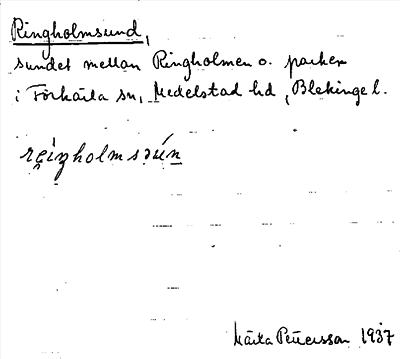 Ringholmsund,
sundet mellan Ringholmen o. parken
i Förkärla sn, Medelstad hd, Blekinge l.
reiŋholmsɔún
Märta Petersson 1937